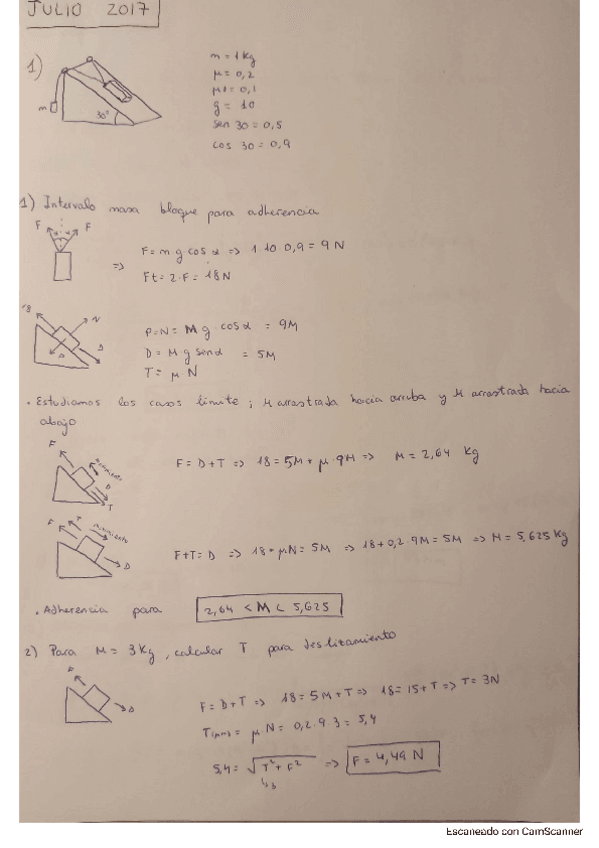 JULIO 2017
1)
m
30°
m = 1 kg
μ = 0,2
μ' = 0,1
g = 10
sen 30 = 0,5
cos 30 = 0,9
1) Intervalo masa bloque para adherencia
F F
F = m g cos α => 1 · 10 · 0,9 = 9 N
=> Ft = 2 · F = 18 N
18 N D
P = N = M g · cos α = 9M
D = M g sen α = 5M
T = μ N
· Estudiamos los casos límite; M arrastrada hacia arriba y M arrastrada hacia
abajo
F movimiento D T
F = D + T => 18 = 5M + μ · 9M => M = 2,64 kg
F T movimiento D
F + T = D => 18 + μN = 5M => 18 + 0,2 · 9M = 5M => M = 5,625 kg
· Adherencia para 2,64 < M < 5,625
2) Para M = 3 kg, calcular T para deslizamiento
D
F = D + T => 18 = 5M + T => 18 = 15 + T => T = 3N
μ N = 0,2 · 9 · 3 = 5,4
5,4 = √T² + F² => F = 4,49 N
↳ 3
Escaneado con CamScanner